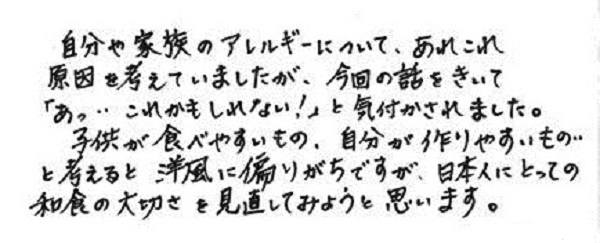 自分や家族のアレルギーについて、あれこれ
原因を考えていましたが、今回の話をきいて
「あっ‥これかもしれない!」と気付かされました。
子供が食べやすいもの、自分が作りやすいもの‥
と考えると洋風に偏りがちですが、日本人にとっての
和食の大切さを見直してみようと思います。